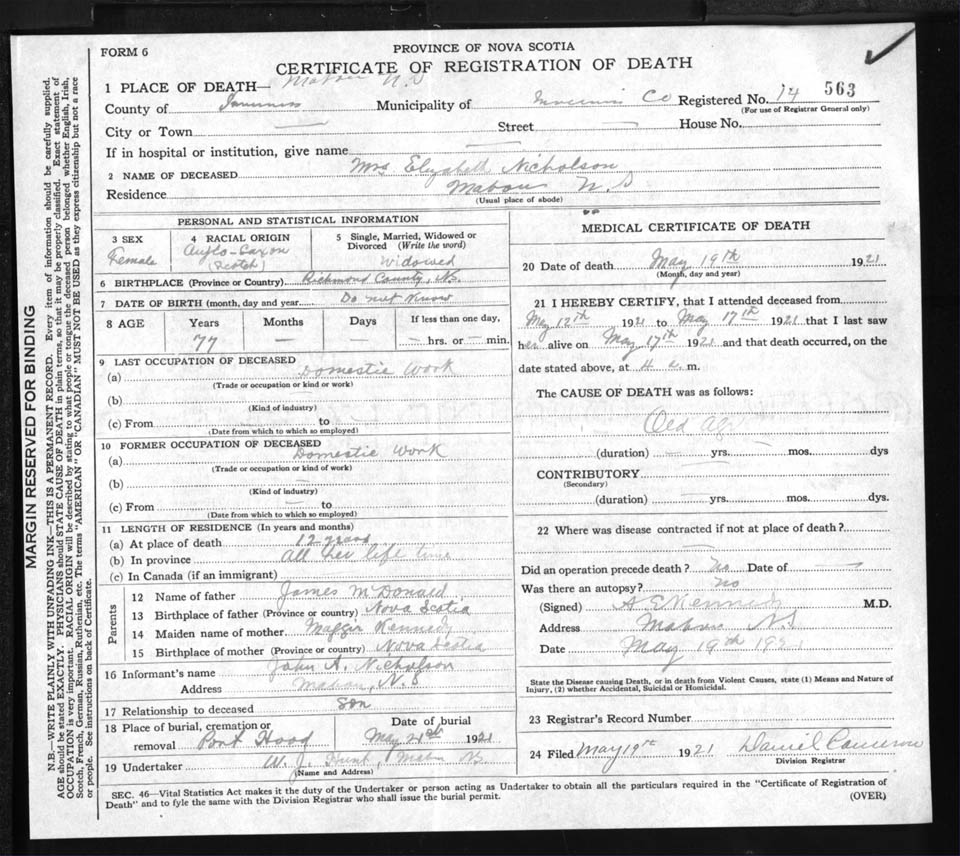 FORM 6
PROVINCE OF NOVA SCOTIA
CERTIFICATE OF REGISTRATION OF DEATH
1 PLACE OF DEATH— Mabou N.S
County of Inverness Municipality of Inverness Co Registered No. 14 563
(For use of Registrar General only)
City or Town — Street — House No.
If in hospital or institution, give name —
2 NAME OF DECEASED Mrs Elizabeth Nicholson
Residence Mabou N.S
(Usual place of abode)
PERSONAL AND STATISTICAL INFORMATION
3 SEX 4 RACIAL ORIGIN 5 Single, Married, Widowed or Divorced (Write the word)
Female Anglo-Saxon (Scotch) Widowed
6 BIRTHPLACE (Province or Country) Richmond County, N.S.
7 DATE OF BIRTH (month, day and year) Do not know
8 AGE Years Months Days If less than one day,
77 — — hrs. or — min.
9 LAST OCCUPATION OF DECEASED
(a) Domestic Work
(Trade or occupation or kind or work)
(b)
(Kind of industry)
(c) From — to
(Date from which to which so employed)
10 FORMER OCCUPATION OF DECEASED
(a) Domestic Work
(Trade or occupation or kind or work)
(b)
(Kind of industry)
(c) From — to
(Date from which to which so employed)
11 LENGTH OF RESIDENCE (In years and months)
(a) At place of death 12 years
(b) In province all her life time
(c) In Canada (if an immigrant)
Parents
12 Name of father James McDonald
13 Birthplace of father (Province or country) Nova Scotia
14 Maiden name of mother Maggie Kennedy
15 Birthplace of mother (Province or country) Nova Scotia
16 Informant's name John A. Nicholson
Address Mabou, N.S
17 Relationship to deceased son
18 Place of burial, cremation or removal Port Hood Date of burial May 21st 1921
19 Undertaker W. J. Hunt, Mabou N.S
(Name and Address)
MEDICAL CERTIFICATE OF DEATH
20 Date of death May 19th 1921
(Month, day and year)
21 I HEREBY CERTIFY, that I attended deceased from
May 12th 1921 to May 17th 1921 that I last saw
her alive on May 17th 1921 and that death occurred, on the
date stated above, at 4 a. m.
The CAUSE OF DEATH was as follows:
Old age
(duration) — yrs. mos. dys
CONTRIBUTORY
(Secondary)
(duration) — yrs. mos. dys.
22 Where was disease contracted if not at place of death?
—
Did an operation precede death? No Date of
Was there an autopsy? No
(Signed) A E Kennedy M.D.
Address Mabou NS
Date May 19th 1921
State the Disease causing Death, or in death from Violent Causes, state (1) Means and Nature of
Injury, (2) whether Accidental, Suicidal or Homicidal.
23 Registrar's Record Number
24 Filed May 19th 1921 Daniel Cameron
Division Registrar
SEC. 46—Vital Statistics Act makes it the duty of the Undertaker or person acting as Undertaker to obtain all the particulars required in the "Certificate of Registration of
Death" and to fyle the same with the Division Registrar who shall issue the burial permit.
(OVER)
MARGIN RESERVED FOR BINDING
N.B.—WRITE PLAINLY WITH UNFADING INK—THIS IS A PERMANENT RECORD. Every item of information should be carefully supplied.
AGE should be stated EXACTLY. PHYSICIANS should STATE CAUSE OF DEATH in plain terms, so that it may be properly classified. Exact statement of
OCCUPATION is very important. RACIAL ORIGIN will be described by stating to what people or tongue the deceased person belonged whether English, Irish,
Scotch, French, German, Russian, Ruthenian, etc. The terms "AMERICAN" OR "CANADIAN" MUST NOT BE USED as they express citizenship but not a race
or people. See instructions on back of Certificate.